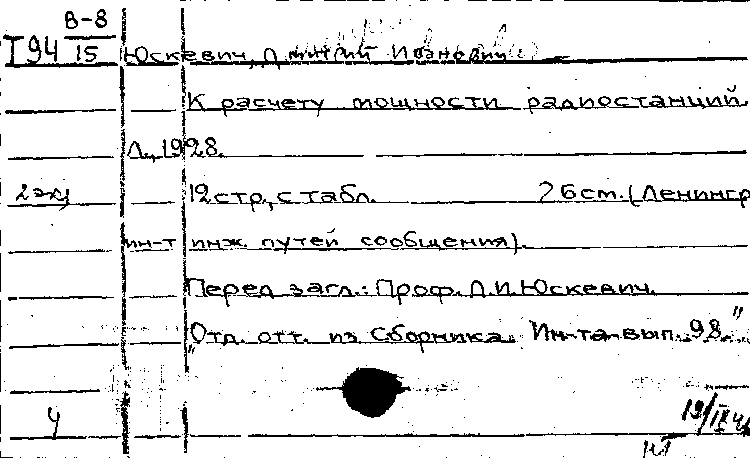 В-8
I 94 15 Юскевич, Дмитрий Иванович
К расчету мощности радиостанций
Л., 1928.
2 экз 12 стр., с табл. 26 см. (Ленингр
ин-т инж. путей сообщения).
Перед загл.: Проф. Д.И. Юскевич.
"Отд. отт. из Сборника Ин-та вып. 98"
4 19/IX